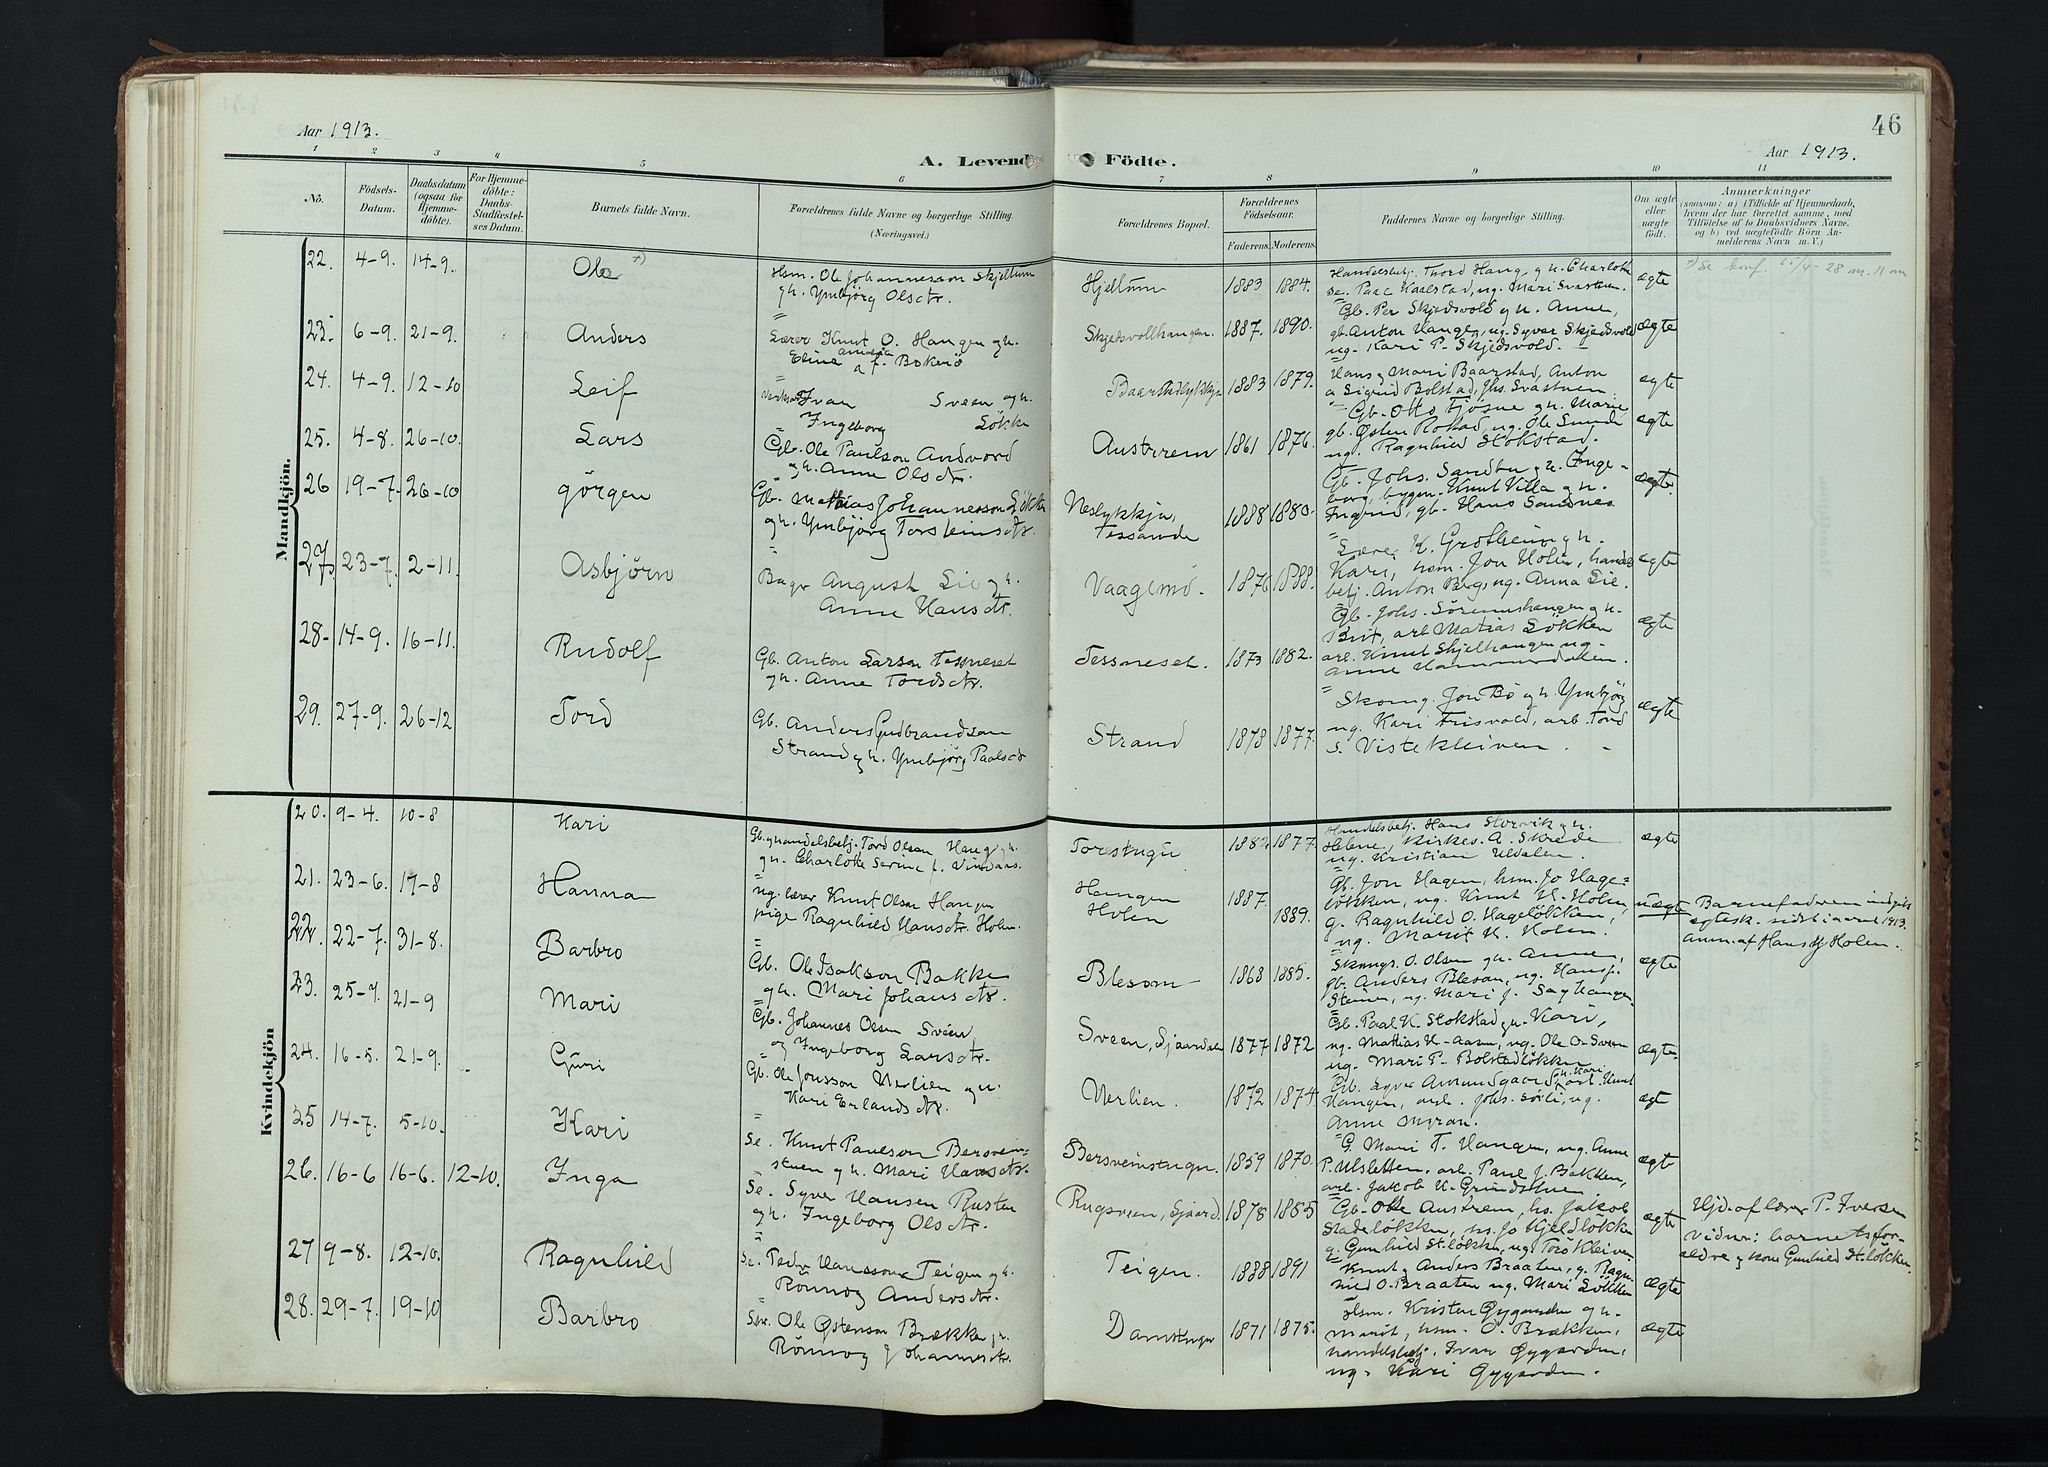 Aar 1913.
A. Levende Födte.
46
Aar 1913.
1 2 3 4 5 6 7 8 9 10 11
No.
Födsels-Datum.
Daabsdatum (ogsaa for Hjemmedöbte).
For Hjemmedöbte: Daabs-Stadfæstelses Datum.
Barnets fulde Navn.
Forældrenes fulde Navne og borgerlige Stilling. (Næringsvei.)
Forældrenes Bopæl.
Forældrenes Födselsaar.
Faderens. Moderens.
Faddernes Navne og borgerlige Stilling.
Om ægte eller uægte födt.
Anmærkninger
(saasom: a) i Tilfælde af Hjemmedaab,
hvem der har forrettet samme, med
Tilföielse af to Daabsvidners Navne,
og b) ved uægtefödte Börn Anmelderens Navn m. V.)
Mandkjön.
22. 4-9. 14-9. Ola x)
Hsm. Ole Johannesson Skjeltum
g h. Ymbjörg Olsdtr.
Hjeltum 1883 1884.
Handelsbetj. Thord Haug, g h. Charlotte
ægte
x) Se konf.
23. 6-9. 21-9. Anders
Lærer Knut O. Haugen g h.
Eline Amalia f. Bokvið
Skjedsvollhaugen. 1887. 1890.
Gb. Per Skjedsvold g h. Anne,
gb. Anton Hange, ug. Syver Skjedsvold
ug. Kari P. Skjedsvold. -
ægte
24. 4-9. 12-10 Leif
Ivar Sveen og h.
Ingeborg Lökke
1883 1879.
Hans og Mari Baarstad, Anton
o Sigrid Bolstad, Jhs. Svastuen.
ægte
25. 4-8. 26-10. Lars
Gb. Ole Paulson Andvord
g h. Anne Olsdtr.
Austrem 1861 1876.
Gb. Otto Fjösne g h. Marie
gb. Østen Rolstad, ug. Ole Sunde
ug. Ragnhild Stokstad.
ægte
26 19-7. 26-10 Görgen
Gb. Mathias Johannesson Lökken
g h. Ymbjörg Torsteinsdtr.
Neslykkja, Tessande 1888 1880.
Gb. Johs. Sandbu g h. Inge-
borg, bygm. Knut Villa g h.
Ingrid, gb. Hans Sandnes
ægte.
27. 23-7. 2-11. Asbjørn
Bagr August Lie g h.
Anne Hansdtr.
Vaagemo. 1876 1888.
Lærer K. Grotheim g h.
Kari, hsm. Jon Holen, handels
betj. Anton Berg, ug. Anna Lie.
ægte
28. 14-9. 16-11. Rudolf
Gb. Anton Larson Tessneset
g h. Anne Tordsdtr.
Tessneset. 1873 1882.
Gb. Johs. Söremshaugen g h.
Brit, arb. Matias Lökken
arb. Knut Skjelhaugen ug.
Anne Hammerdalen.
ægte
29. 27-9. 26-12 Tord
Gb. Anders Gudbrandson
Strand g h. Ymbjörg Paalsdtr
Strand 1878 1877.
Skomg. Jon Bö g h. Ymbjörg
ug. Kari Frisvold, arb. Tord
S. Vistekleiven. -
ægte
Kvindekjön
20. 9-4. 10-8 Kari
Gb. og handelsbetj. Tord Olsen Haug g h.
g h. Charlotte Serine f. Vindaas.
Torstugu 1882 1877.
Handelsbetj. Hans Storvik g h.
Helene, kirkes. A. Skrede
ug. Kristian Uldalen.
ægte
21. 23-6. 17-8 Hanna
ug. lærer Knut Olsen Haugen
pige Ragnhild Hansdtr. Holen.
Haugen 1887.
Holen 1889.
Gb. Jon Hagen, hsm. Jo Hage-
løkken, ug. Knut H. Holen,
g. Ragnhild O. Hageløkken,
ug. Marit H. Holen.
uægte
Barnefaderen indgik
egtesk. sidst i aaret 1913.
Anm. af Hans Hj Holen.
22. 22-7. 31-8. Barbro
Gb. Ole Isakson Bakke
g h. Mari Johansdtr.
Blesom 1868 1885.
Skomgr. O. Olsen g h. Anne,
gb. Anders Blesom, ug. Hans J.
Steine, ug. Mari J. Saghaugen.
ægte
23. 25-7. 21-9 Mari
Gb. Johannes Olsen Sveen
og Ingeborg Larsdtr.
Sveen, Sjaardalen 1877 1872
Gb. Paal K. Stokstad g h. Kari,
ug. Mathias H. Aasen, ug. Ole O. Sveen
ug. Mari P. Bolstadløkken
ægte
24. 16-5. 21-9. Guri
Gb. Ole Jonsson Uerlien g h.
Kari Erlandsdtr.
Uerlien. 1872 1874
Gb. Syver Amundgaard g h. Kari, Knut
Haugen, arb. Johs. Sörli, ug.
Anne Myran.
ægte
25 14-7. 5-10. Kari
Se. Knut Paulson Bersvein-
stuen g h. Mari Hansdtr.
Bersveinstugu. 1859 1870.
G. Mari T. Haugen, ug. Anne
P. Ulsletten, arb. Paul J. Bakken,
arb. Jakob K. Grindstuen
ægte
26. 16-6 16-6. 12-10. Inga
Se. Syver Hansen Rusten
g h. Ingeborg Olsdtr.
Rugsveen, Sjaard. 1878 1885
Gb. Otte Austrem, hs. Jakob
Stadeløkken, hs. Jo Kjeldløkken
g. Gunhild St.løkken, ug. Tore Kleiven
ægte
Hjd. af lærer P. Iversen
vidner: barnetsfor-
ældre og kone Gunhild St.løkken.
27 9-8. 12-10. Ragnhild
Se. Peder Hansson Teigen g h.
Rönnog Andersdtr.
Teigen. 1888 1891
Knut og Anders Braaten, g. Ragn-
hild O. Braaten ug. Mari Lökken
ægte
28. 29-7. 19-10 Barbro
Sme. Ole Østensen Brække g h.
Rönnog Johannesdtr.
Damstugu 1871 1875.
Hsm. Kristen Øygarden g h.
Marit, hsm. O. Brækken,
handelsbetj. Ivar Øygarden,
ug. Kari Øygarden.
ægte